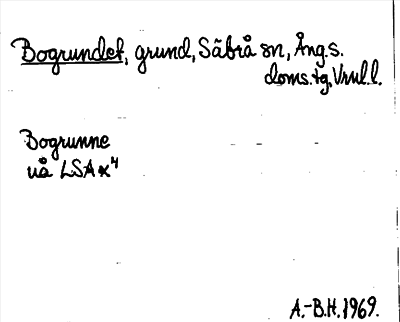 Bogrundet, grund, Säbrå sn, Ång.s.
doms.tg, Vrnl.l.
Bogrunne
uå LSA κ⁴
A.-B.H. 1969.